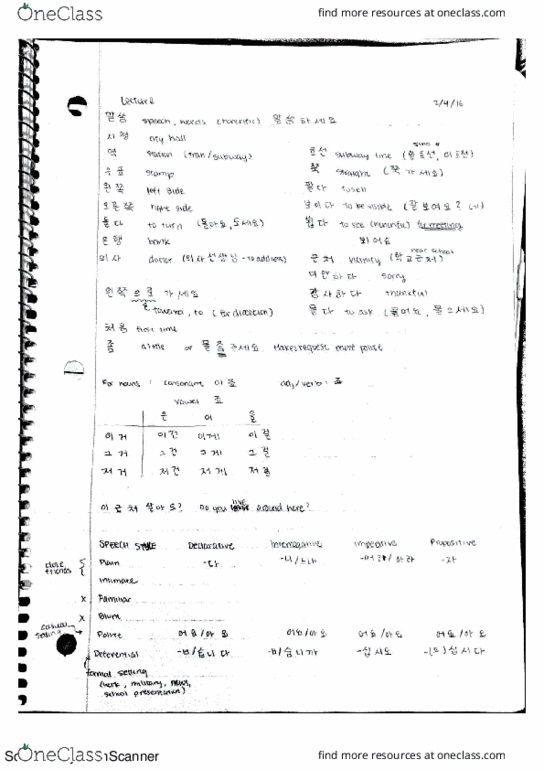 OneClass find more resources at oneclass.com
Lecture 2/4/16
말씀 speech, words (honorific) 말씀하세요
시청 city hall
역 station (train/subway) 호선 subway line
우표 stamp 쭉 straight (쭉 가세요)
왼쪽 left side 팔다 to sell
오른쪽 right side 보이다 to be visible (잘 보여요? 네)
돌다 to turn (돌아요, 도세요) 뵙다 to see (honorific) for meeting
은행 bank 봬어요
의사 doctor (의사 선생님 - to address) 근처 vicinity (학교 근처) near school
미안하다 sorry
왼쪽으로 가세요 감사하다 thankful
toward, to (for direction) 묻다 to ask
처음 first time
좀 a little or 물 좀 주세요. Makes request more polite
For nouns: consonant 이죠 adj/verb: 죠
vowel 죠
은 이 을
이거 이건 이게 이걸
그거 그건 그게 그걸
저거 저건 저게 저걸
이 근처 살아요? Do you live around here?
SPEECH STYLE Declarative Interrogative Imperative Propositive
close friends Plain -다 -니/느냐 -어라/아라 -자
Intimate
x Familiar
x Blunt
casual setting Polite 어요/아요 어요/아요 어요/아요 어요/아요
Deferential -ㅂ/습니다 -ㅂ/습니까 -십시오 -(으)십시다
formal setting
(work, military, news,
school presentation)
Scanner
OneClass find more resources at oneclass.com